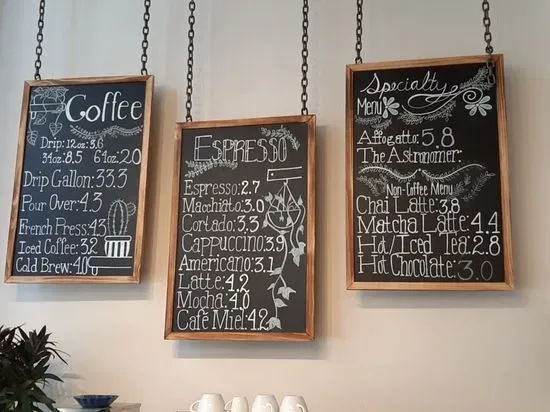 Coffee
Drip: 12oz: 3.6
34oz: 8.5 64oz: 20
Drip Gallon: 33.3
Pour Over: 4.3
French Press: 4.3
Iced Coffee: 3.2
Cold Brew: 4.0
Espresso
Espresso: 2.7
Macchiato: 3.0
Cortado: 3.3
Cappuccino: 3.9
Americano: 3.1
Latte: 4.2
Mocha: 4.0
Café Miel: 4.2
Specialty
Menu
Affogatto: 5.8
The Astronomer:
Non-Coffee Menu
Chai Latte: 3.8
Matcha Latte: 4.4
Hot/Iced Tea: 2.8
Hot Chocolate: 3.0